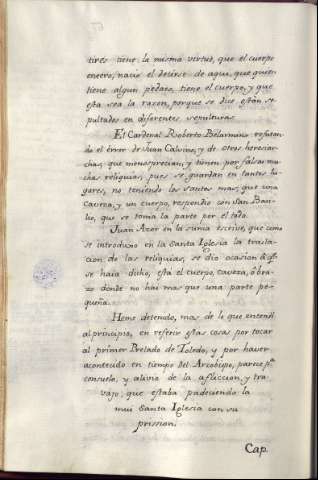 tires tiene la misma virtud, que el cuerpo
entero, nacio el decirse de aqui, que quien
tiene algun pedazo, tiene el cuerpo, y que
esta sea la razon, porque se dice estàn se-
pultados en diferentes sepulturas.
El Cardenal Roberto Belarmino refutan-
do el érror de Juan Calvino, y de otros heresiar-
chas, que menosprecian, y tienen por falsas mu-
chas reliquias, pues se guardan en tantos lu-
gares, no teniendo los santos mas, que una
caveza, y un cuerpo, respondio con San Pau-
lo, que se toma la parte por el todo.
Juan Azor en la suma escrive, que como
se introdujo en la Santa Iglesia la trasla-
cion de las reliquias, se dio ocasion à q.e
se haia dicho, està el cuerpo, caveza, ò bra-
zo donde no hai mas que una parte pe-
queña.
Heme detenido, mas de lo que entendi
al principio, en referir estas cosas por tocar
al primer Prelado de Toledo, y por haver
acontecido en tiempo del Arzobispo, parece p.a
consuelo, y alivio de la afliccion, y tra-
vajo, que estaba padeciendo la
mui Santa Iglesia con su
prission.
Cap.